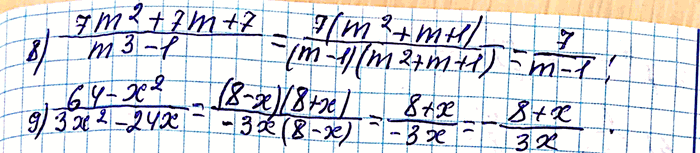 8) (7m² + 7m + 7)/(m³ - 1) = 7(m² + m + 1)/((m - 1)(m² + m + 1)) = 7/(m - 1);
9) (64 - x²)/(3x² - 24x) = (8 - x)(8 + x)/(-3x(8 - x)) = (8 + x)/(-3x) = -(8 + x)/(3x).